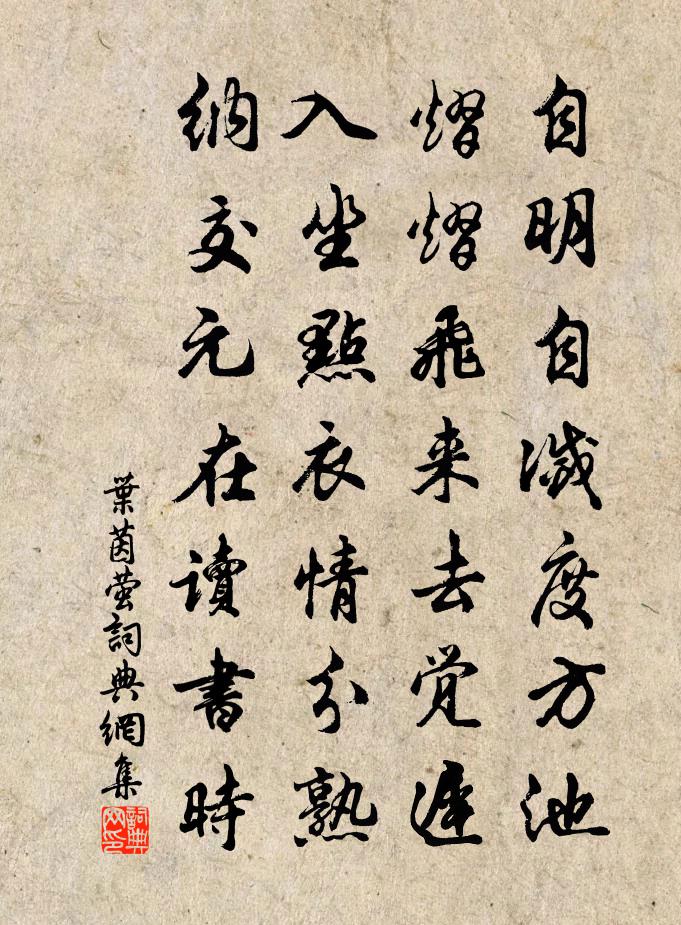 自明自滅度方池
熠熠飛来去覚遲
入坐點衣情分熟
納交元在讀書時
葉茵萤詞典網集
詞典
网印